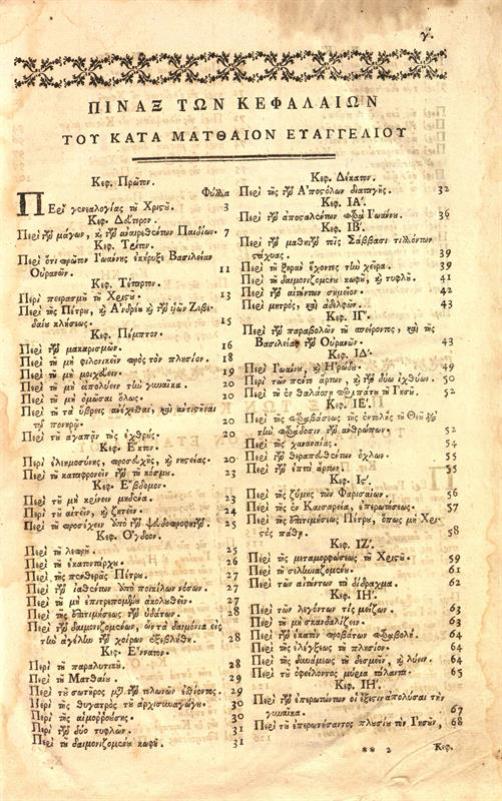 γ.
ΠΙΝΑΞ ΤΩΝ ΚΕΦΑΛΑΙΩΝ
ΤΟΥ ΚΑΤΑ ΜΑΤΘΑΙΟΝ ΕΥΑΓΓΕΛΙΟΥ
Κεφ. Πρῶτον.
Φύλλα
Περὶ γενεαλογίας τοῦ Χριστοῦ. 3
Κεφ. Δεύτερον.
Περὶ τῶν μάγων, καὶ τῶν ἀναιρεθέντων Παιδίων. 7
Κεφ. Τρίτον.
Περὶ ὅτι πρῶτον Ἰωάννης ἐκήρυξε Βασιλείαν
Οὐρανῶν. 11
Κεφ. Τέταρτον.
Περὶ πειρασμοῦ τοῦ Χριστοῦ. 13
Περὶ τῆς Πέτρου, καὶ Ἀνδρέου καὶ τῶν υἱῶν Ζεβε-
δαίου κλήσεως. 15
Κεφ. Πέμπτον.
Περὶ τῶν μακαρισμῶν. 16
Περὶ τοῦ μὴ φιλονικεῖν πρὸς τὸν πλησίον. 18
Περὶ τοῦ μὴ μοιχεύειν. 19
Περὶ τοῦ μὴ ἀπολύειν τὴν γυναῖκα. 20
Περὶ τοῦ μὴ ὀμόσαι ὅλως. 20
Περὶ τοῦ τὰ ὕβρεις ἀνέχεσθαι, καὶ ἀντιστῆναι
τῷ πονηρῷ. 20
Περὶ τοῦ ἀγαπᾶν τοὺς ἐχθρούς. 20
Κεφ. Ἕκτον.
Περὶ ἐλεημοσύνης, προσευχῆς, καὶ νηστείας. 20
Περὶ τοῦ καταφρονεῖν τοῦ κόσμου. 23
Κεφ. Ἕβδομον.
Περὶ τοῦ μὴ κρίνειν μηδένα. 23
Περὶ τοῦ αἰτεῖν, καὶ ζητεῖν. 24
Περὶ τοῦ προσέχειν ἀπὸ τῶν ψευδοπροφητῶν. 25
Κεφ. Ὄγδοον.
Περὶ τοῦ λεπροῦ. 25
Περὶ τοῦ ἑκατοντάρχου. 26
Περὶ τῆς πενθερᾶς Πέτρου. 27
Περὶ τῶν ἰαθέντων ἀπὸ ποικίλων νόσων. 27
Περὶ τοῦ μὴ ἐπιτρεπομένου ἀκολουθεῖν. 27
Περὶ τῆς ἐπιτιμήσεως τῶν ὑδάτων. 28
Περὶ τῶν δαιμονιζομένων, ὧν τὰ δαιμόνια εἰς
τὴν ἀγέλην τῶν χοίρων ἐξεβλήθη. 28
Κεφ. Ἔννατον.
Περὶ τοῦ παραλυτικοῦ. 28
Περὶ τοῦ Ματθαίου. 29
Περὶ τοῦ σωτῆρος μετὰ τῶν τελωνῶν ἐσθίοντος. 29
Περὶ τῆς θυγατρὸς τοῦ ἀρχισυναγώγου. 30
Περὶ τῆς αἱμορροούσης. 30
Περὶ τῶν δύο τυφλῶν. 31
Περὶ τοῦ δαιμονιζομένου κωφοῦ. 31
Κεφ. Δέκατον.
Περὶ τῆς τῶν Ἀποστόλων διαταγῆς. 32
Κεφ. ΙΑ'.
Περὶ τῶν ἀποσταλέντων παρὰ Ἰωάννου. 36
Κεφ. ΙΒ'.
Περὶ τῶν μαθητῶν τοῖς Σάββασι τιλλόντων
στάχυας. 39
Περὶ τοῦ ξηρὰν ἔχοντος τὴν χεῖρα. 39
Περὶ τοῦ δαιμονιζομένου κωφοῦ, καὶ τυφλοῦ. 41
Περὶ τῶν αἰτούντων σημεῖον. 42
Περὶ μητρὸς, καὶ ἀδελφῶν. 43
Κεφ. ΙΓ'.
Περὶ τῶν παραβολῶν τοῦ σπείροντος, καὶ τῆς
Βασιλείας τῶν Οὐρανῶν. 43
Κεφ. ΙΔ'.
Περὶ Ἰωάννου, καὶ Ἡρώδου. 49
Περὶ τῶν πέντε ἄρτων, καὶ τῶν δύο ἰχθύων. 50
Περὶ τοῦ ἐν θαλάσσῃ περιπάτου τοῦ Ἰησοῦ. 52
Κεφ. ΙΕ'.
Περὶ τῆς παραβάσεως τῆς ἐντολῆς τοῦ Θεοῦ διὰ
τὴν παράδοσιν τῶν ἀνθρώπων. 52
Περὶ τῆς χαναναίας. 54
Περὶ τῶν θεραπευθέντων ὄχλων. 55
Περὶ τῶν ἑπτὰ ἄρτων. 55
Κεφ. Ις'.
Περὶ τῆς ζύμης τῶν Φαρισαίων. 56
Περὶ τῆς ἐν Καισαρείᾳ ἐπερωτήσεως. 57
Περὶ τῆς ἐπιτιμήσεως Πέτρου, ὅπως μὴ Χρι-
στὸς πάθῃ. 58
Κεφ. ΙΖ'.
Περὶ τῆς μεταμορφώσεως τοῦ Χριστοῦ. 59
Περὶ τοῦ σεληνιαζομένου. 61
Περὶ τῶν αἰτούντων τὸ δίδραχμα. 62
Κεφ. ΙΗ'.
Περὶ τῶν λεγόντων τίς μείζων. 63
Περὶ τοῦ μὴ σκανδαλίζειν. 63
Περὶ τῶν ἑκατὸν προβάτων παραβολή. 64
Περὶ τῆς ἐλέγξεως τοῦ πλησίον. 64
Περὶ τῆς δυνάμεως τοῦ δεσμεῖν, καὶ λύειν. 64
Περὶ τοῦ ὀφείλοντος μύρια τάλαντα. 65
Κεφ. ΙΗ'.
Περὶ τῶν ἐπερωτώντων εἰ ἔξεστιν ἀπολύσαι τὴν
γυναῖκα. 67
Περὶ τοῦ ἐπερωτήσαντος πλουσίου τὸν Ἰησοῦν, 68
** 2 Κεφ.